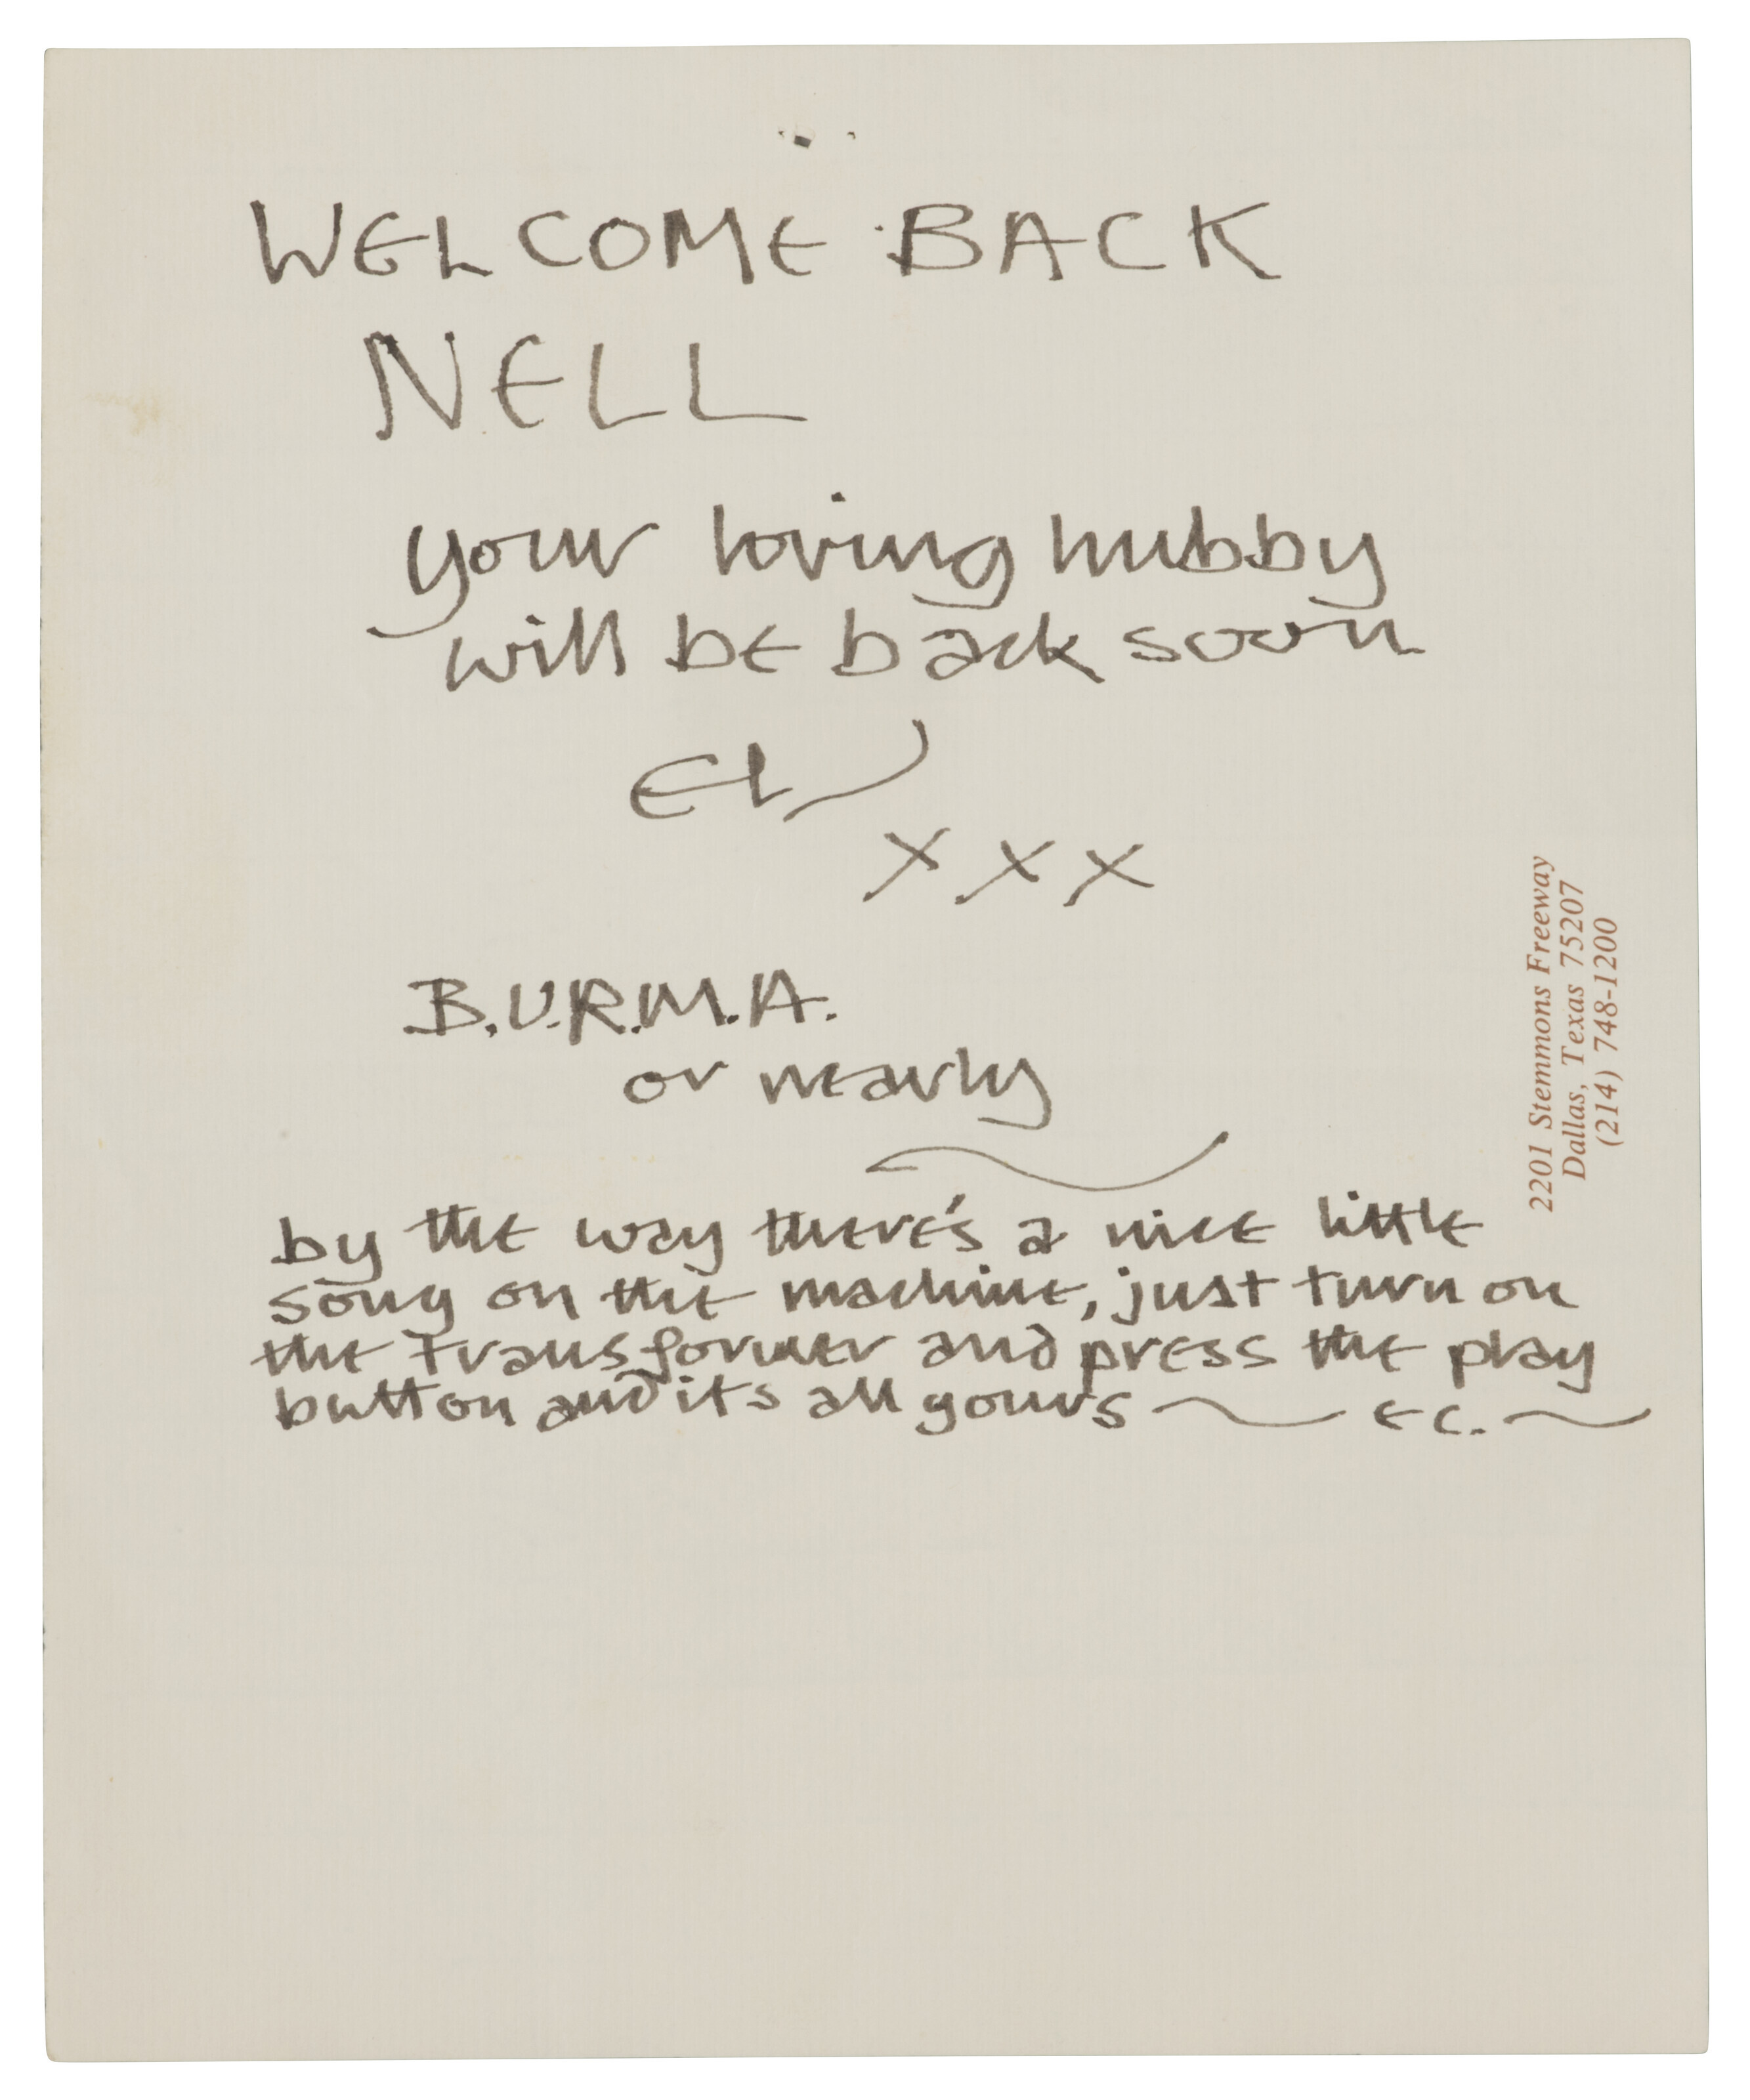 WELCOME BACK
NELL
your loving hubby
will be back soon
El
x x x
B.U.R.M.A.
or nearly
by the way there's a nice little
song on the machine, just turn on
the transformer and press the play
button and its all yours ~ E C. ~
2201 Stemmons Freeway
Dallas, Texas 75207
(214) 748-1200